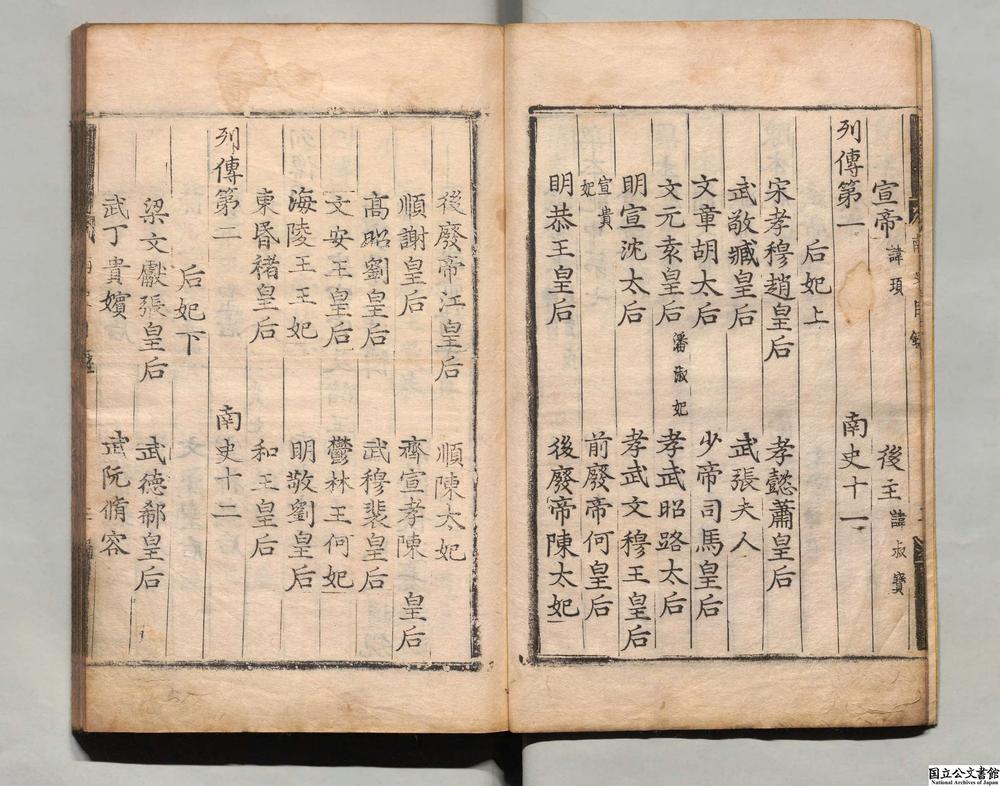 宣帝 諱頊 後主 諱叔寶
列傳第一 南史十一
后妃上
宋孝穆趙皇后 孝懿蕭皇后
武敬臧皇后 武張夫人
文章胡太后 少帝司馬皇后
文元袁皇后 潘淑妃 孝武昭路太后
明宣沈太后 孝武文穆王皇后
宣貴妃 前廢帝何皇后
明恭王皇后 後廢帝陳太妃
後廢帝江皇后 順陳太妃
順謝皇后 齊宣孝陳皇后
高昭劉皇后 武穆裴皇后
文安王皇后 鬱林王何妃
海陵王王妃 明敬劉皇后
東昏褚皇后 和王皇后
列傳第二 南史十二
后妃下
梁文獻張皇后 武德郗皇后
武丁貴嬪 武阮脩容
国立公文書館
National Archives of Japan